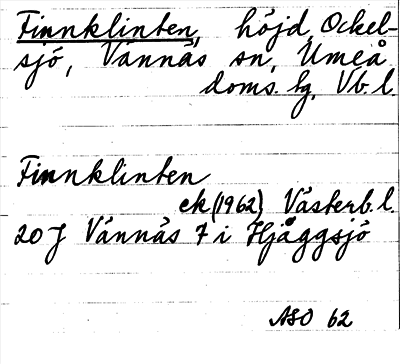 Finnklinten, höjd, Ockel-
sjö, Vännäs sn, Umeå
doms. tg, Vb. l.
Finnklinten
ek (1962) Västerb. l.
20 J Vännäs 7 i Hjåggsjö
ASO 62